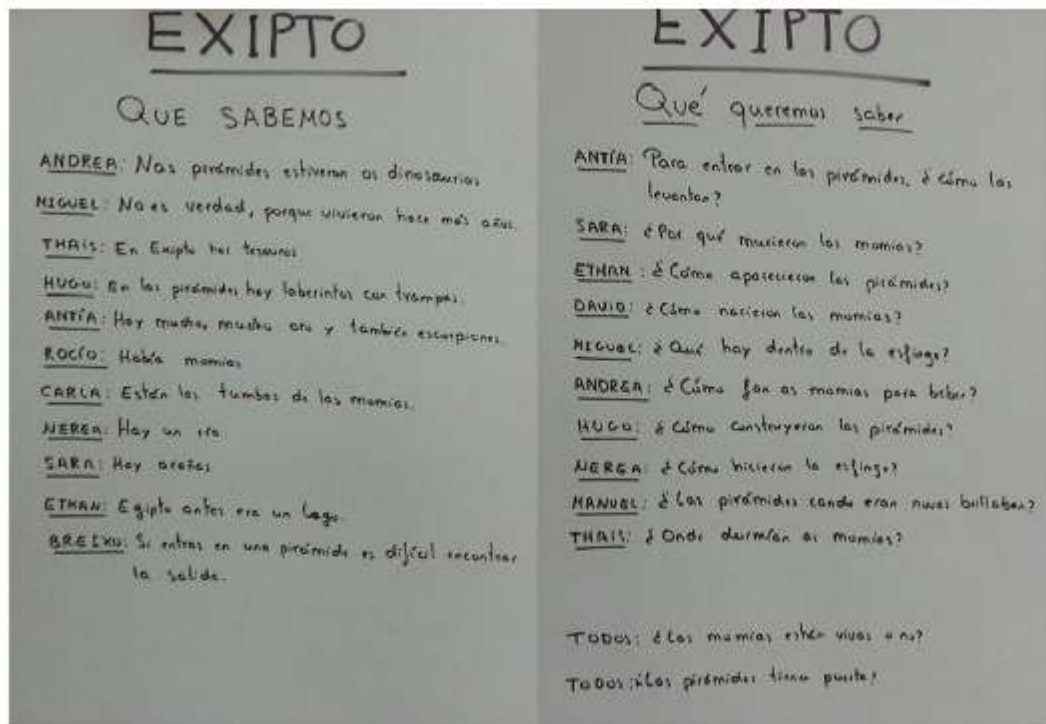 EXIPTO
QUE SABEMOS
ANDREA: Nas pirámides estiveron os dinosaurios
MIGUEL: No es verdad, porque vivieron hace más años.
THAIS: En Exipto hai tesouros
HUGO: En las pirámides hay laberintos con trampas.
ANTÍA: Hay mucho, mucho oro y también escorpiones.
ROCÍO: Había momias
CARLA: Están las tumbas de las momias.
NEREA: Hay un río
SARA: Hay arañas
ETHAN: Egipto antes era un lago.
BREIXO: Si entras en una pirámide es difícil encontrar
la salida.
EXIPTO
Qué queremos saber
ANTÍA: Para entrar en las pirámides, ¿cómo las
levantan?
SARA: ¿Por qué murieron las momias?
ETHAN: ¿Cómo aparecieron las pirámides?
DAVID: ¿Cómo nacieron las momias?
MIGUEL: ¿Qué hay dentro de la esfinge?
ANDREA: ¿Cómo fan as momias para beber?
HUGO: ¿Cómo construyeron las pirámides?
NEREA: ¿Cómo hicieron la esfinge?
MANUEL: ¿Las pirámides cando eran novas brillaban?
THAIS: ¿Onde durmían as momias?
TODOS: ¿Las momias están vivas o no?
TODOS: ¿Las pirámides tienen puerta?